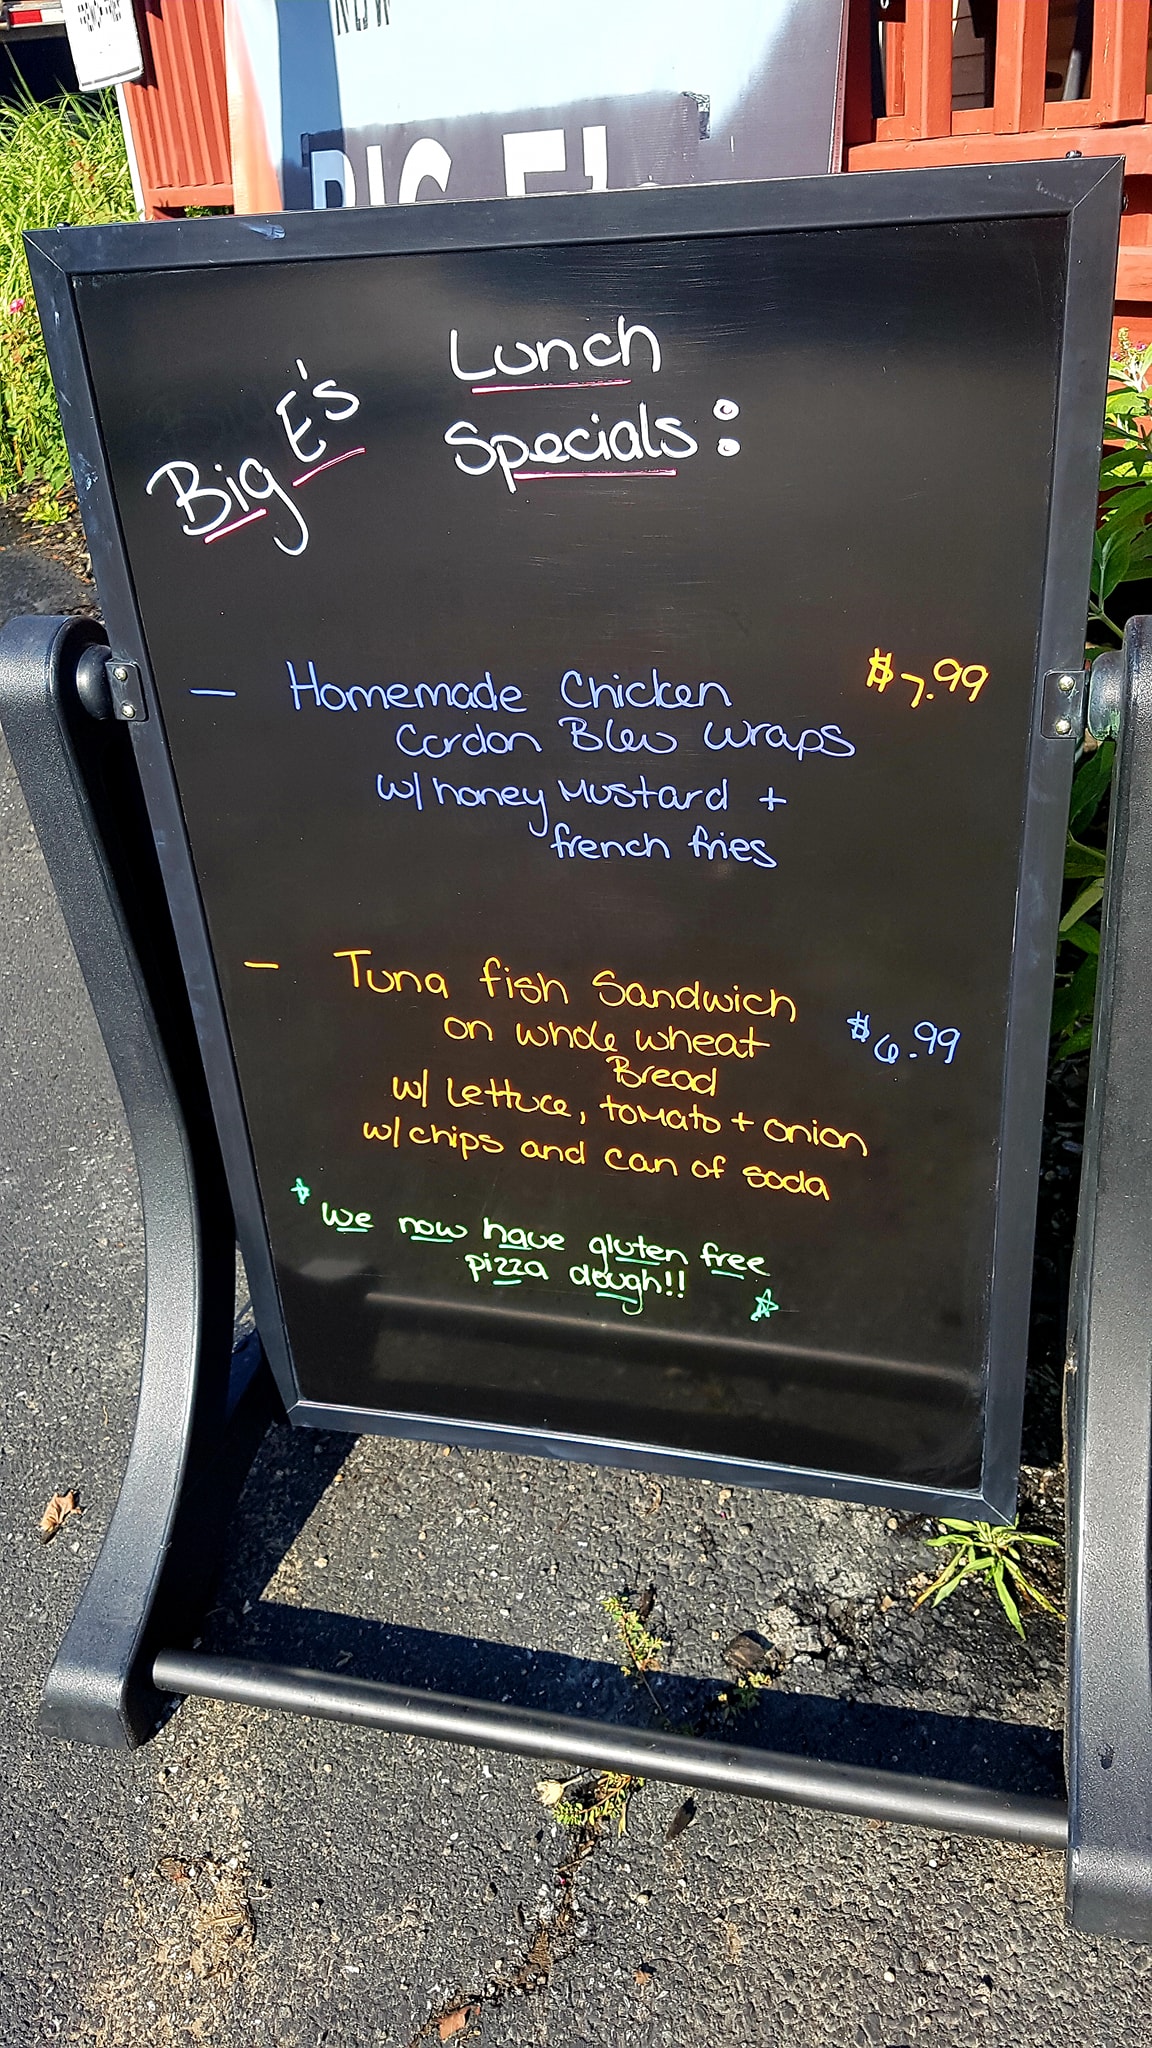 NOW
BIG E'
Big E's Lunch
Specials:
— Homemade Chicken $7.99
Cordon Bleu wraps
w/ honey mustard +
french fries
— Tuna fish Sandwich
on whole wheat $6.99
Bread
w/ Lettuce, tomato + onion
w/ chips and can of soda
We now have gluten free
pizza dough!!